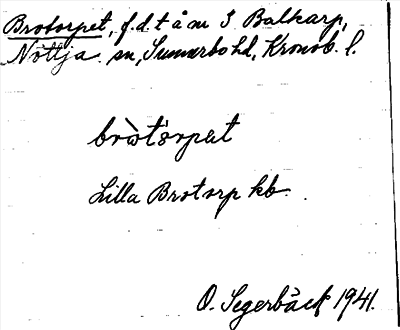 Brotorpet, f.d. t å m 3 Balkarp,
Nöttja sn, Sunnerbo hd, Kronob. l.
bròtårpat
Lilla Brotorp kb.
O. Segerbäck 1941.